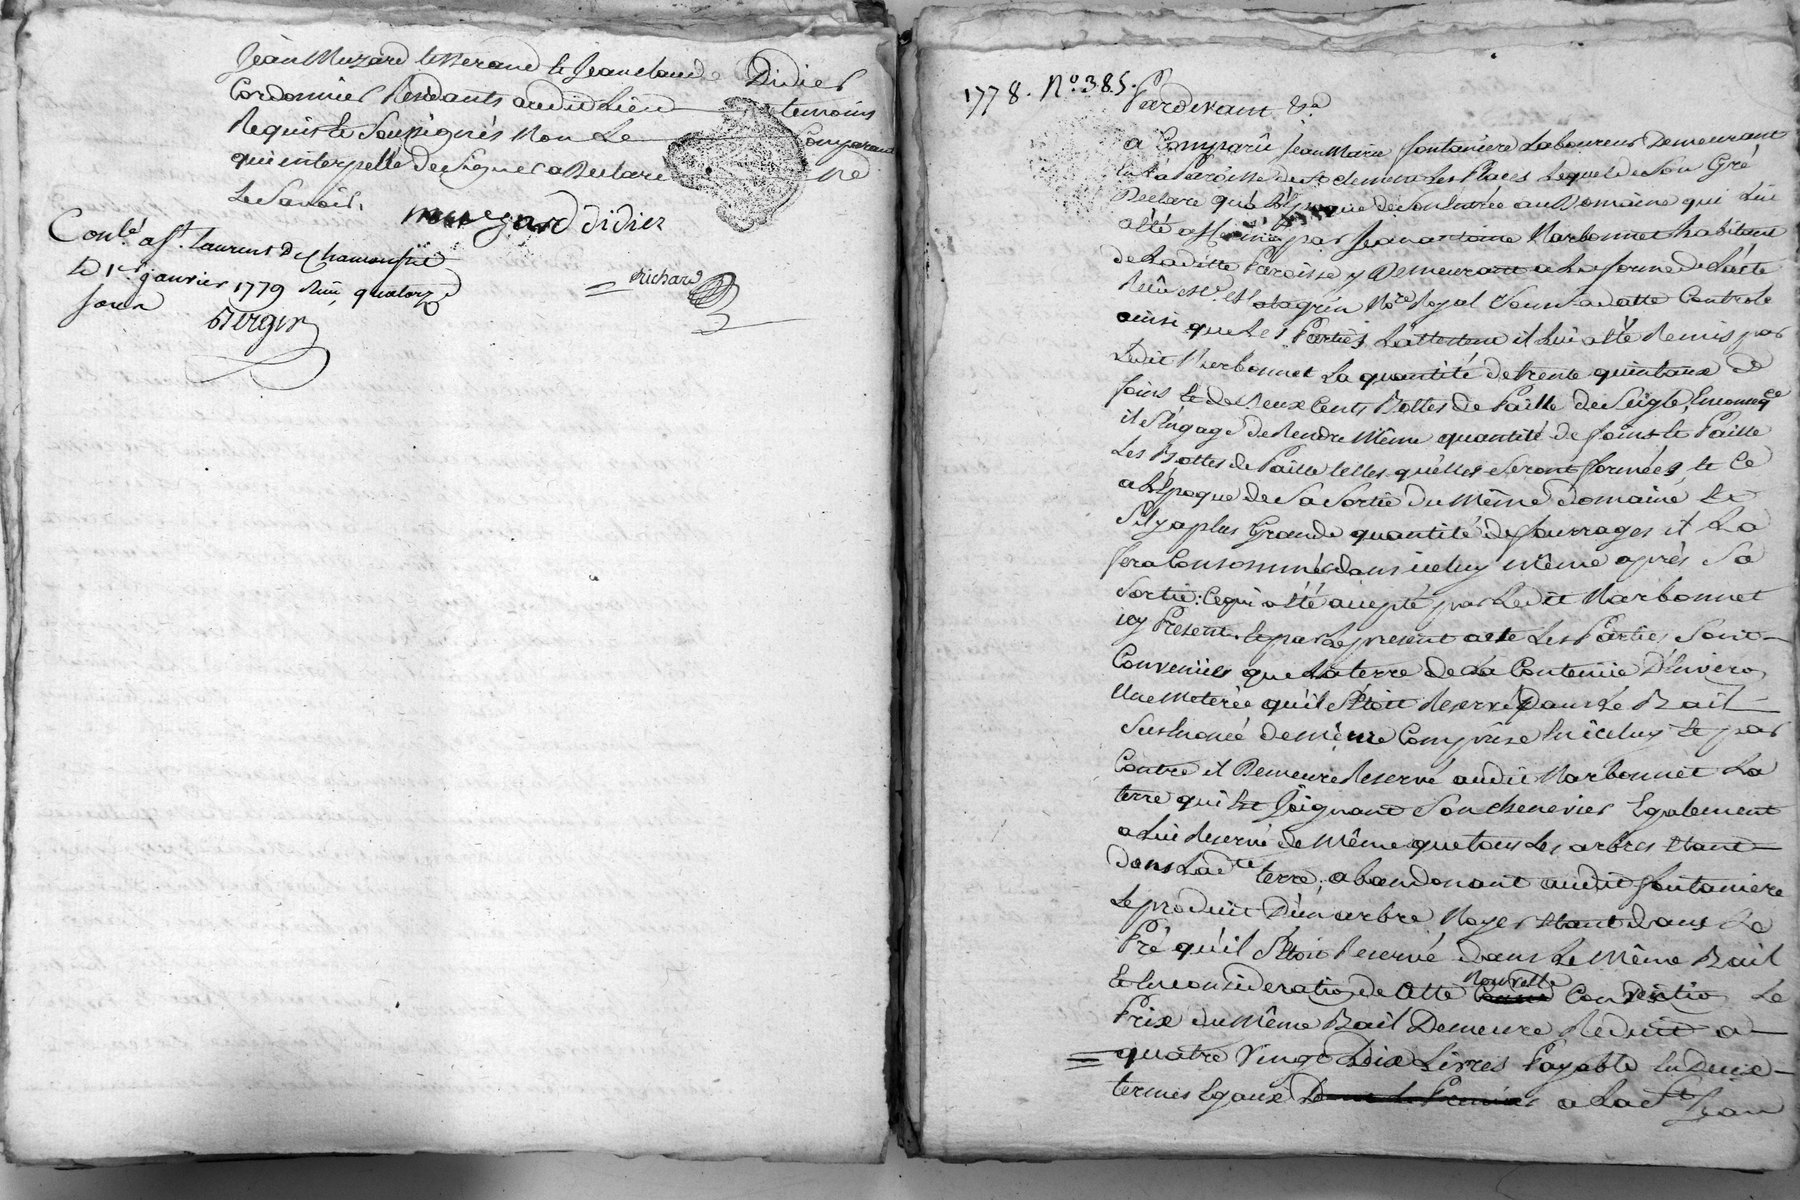 Jean Muzard leterand et Jean claude Didier
Cordonnier Residants audit Lieu temoins
Requis et Soussignés Non Le Comparant
qui interpellé de Signer a Declaré ne
Le Savoir.
muzard didier
Conlé a St. laurent de chamousset
Le 1er janvier 1779 Reçu quatorze
sous
Berger
Richard
1778. No. 385.
Pardevant &a
a Comparû Jean Marie fontaniere Laboureur Demeurant
En La Paroisse de St clement Les Places Lequel de Son Gré
Declare qu'a L'époque de Son Entrée au Domaine qui Lui
a été affermé par Jean antoine Narbonnet habitant
de Laditte Paroisse y Demeurant a La forme de L'acte
Reçû Me. Nore Royal Controle
ainsi que Les Parties L'attestent il Lui a été Remis par
Ledit Narbonnet La quantité de trente quintaux de
foins et de deux Cents Bottes de Paille de Seigle, En conseqce
il S'Engage de Rendre Même quantité de foins et Paille
Les Bottes de Paille telles qu'elles Seront formées et Ce
a L'Epoque de Sa Sortie du Même Domaine et
S'il y a plus Grande quantité de fourrages il La
fera Consommer dans iceluy même après Sa
Sortie: Ce qui a été accepté par Ledit Narbonnet
icy Present. Et par Le present acte Les Parties Sont
Convenües que La terre de La Contenüe D'Environ
Une Meterée qu'il S'étoit Reservé Dans Le Bail
Susenoncé demeure Comprise En iceluy et par
Contre il Demeure Reservé audit Narbonnet La
terre qui Est Joignant Son chenevier Egalement
a Lui Reservé de Même que tous Les arbres Etant
dans Ladte terre, abandonant audit fontaniere
Le produit D'un arbre Noyer Etant dans Le
Pré qu'il S'étoit Reservé dans Le Même Bail
Et En consideration de Cette Nouvelle Convention Le
Prix du Même Bail Demeure Reduit a
quatre Vingt Dix Livres Payable En Deux
termes Egaux a La St Jean